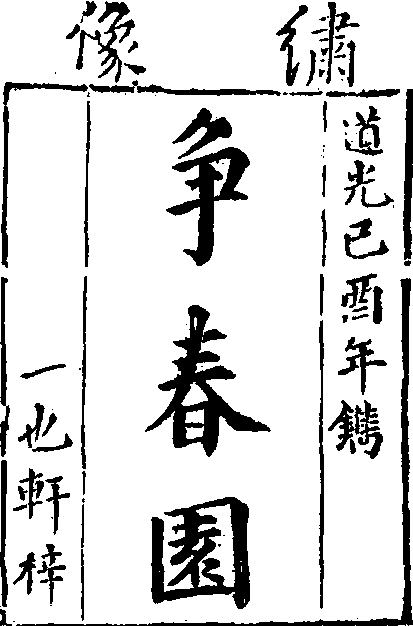 繡像
道光己酉年鐫
争春園
一也軒梓